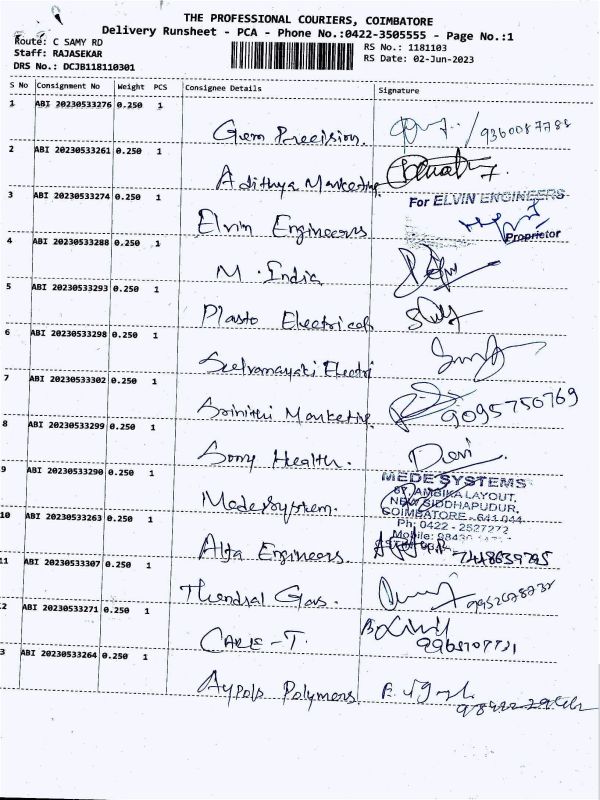 THE PROFESSIONAL COURIERS, COIMBATORE
Delivery Runsheet - PCA - Phone No.:0422-3505555 - Page No.:1
Route: C SAMY RD
RS No.: 1181103
Staff: RAJASEKAR
RS Date: 02-Jun-2023
DRS No.: DCJB118110301
S No Consignment No Weight PCS Consignee Details Signature
1 ABI 20230533276 0.250 1
Gem Precision. /9360087788
2 ABI 20230533261 0.250 1
Adithya Marketing
3 ABI 20230533274 0.250 1
For ELVIN ENGINEERS
Elvin Engineers
Proprietor
4 ABI 20230533288 0.250 1
M. India
5 ABI 20230533293 0.250 1
Plasto Electricals
6 ABI 20230533298 0.250 1
Selvanayaki Electri
7 ABI 20230533302 0.250 1
Srinithi Marketing 9095750769
8 ABI 20230533299 0.250 1
Sony Health. Devi
9 ABI 20230533290 0.250 1
MEDE SYSTEMS
67, AMBIKA LAYOUT,
NEW SIDDHAPUDUR,
COIMBATORE - 641 044
Ph: 0422 - 2527272
Mobile:
Medesystem.
10 ABI 20230533263 0.250 1
Alfa Engineers 7448639795
11 ABI 20230533307 0.250 1
Thendral Gas. 9952678732
2 ABI 20230533271 0.250 1
CARE-T.
3 ABI 20230533264 0.250 1
Aypols Polymers